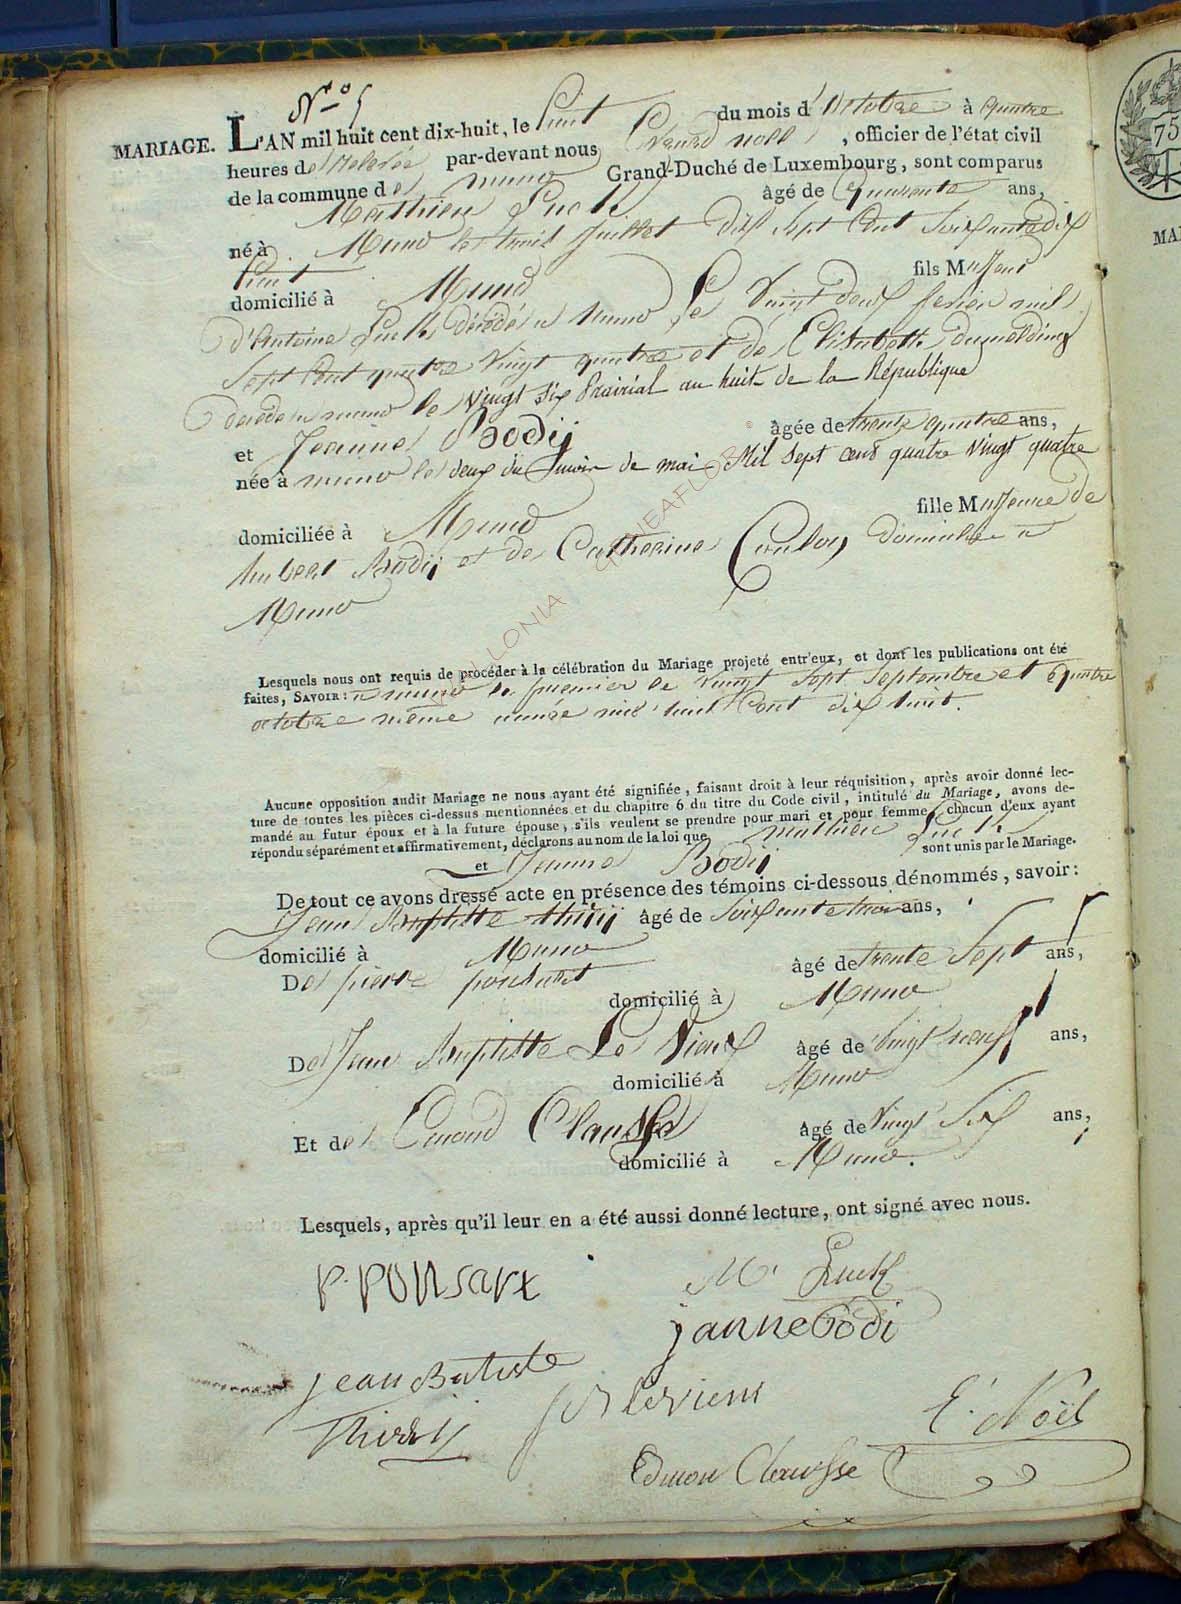 N.º 5
MARIAGE. L'AN mil huit cent dix-huit, le huit du mois d'octobre à quatre
heures de relevée par-devant nous Evrard noël, officier de l'état civil
de la commune de muno Grand-Duché de Luxembourg, sont comparus
Mathieu Luck âgé de quarante ans,
né à Muno le trois juillet dix sept cent soixante dix
huit fils Majeur
domicilié à Muno
d'Antoine Luck décédé a muno Le vingt deux mil
sept cent quatre vingt quatre et de Elisabeth
décédé a muno le vingt six prairial an huit de la République
et Jeanne Bodij âgée de trente quatre ans,
née à muno le deux du mois de mai Mil sept cent quatre vingt quatre
domiciliée à Muno fille Majeure de
hubert Bodij et de Catherine domicilié a
Muno
Lesquels nous ont requis de procéder à la célébration du Mariage projeté entr'eux, et dont les publications ont été
faites, SAVOIR: a muno le premier le vingt sept septembre et quatre
octobre même année mil huit cent dix huit.
Aucune opposition audit Mariage ne nous ayant été signifiée, faisant droit à leur réquisition, après avoir donné lec-
ture de toutes les pièces ci-dessus mentionnées et du chapitre 6 du titre du Code civil, intitulé du Mariage, avons de-
mandé au futur époux et à la future épouse, s'ils veulent se prendre pour mari et pour femme, chacun d'eux ayant
répondu séparément et affirmativement, déclarons au nom de la loi que mathieu Luck
et Jeanne Bodij sont unis par le Mariage.
De tout ce avons dressé acte en présence des témoins ci-dessous dénommés, savoir:
Jean Baptiste thirij âgé de soixante trois ans,
domicilié à Muno
De pierre ponsart âgé de trente sept ans,
domicilié à Muno
De Jean Baptiste Le Vieux âgé de vingt neuf ans,
domicilié à Muno
Et de Emond Clausse âgé de vingt six ans,
domicilié à Muno.
Lesquels, après qu'il leur en a été aussi donné lecture, ont signé avec nous.
P. PONsart
M. Luck
janne bodi
jean Batiste
Thirij
J B levieux
E. Noël
Edmon Clausse
WALLONIA GENEAFLOR ©
75
MA